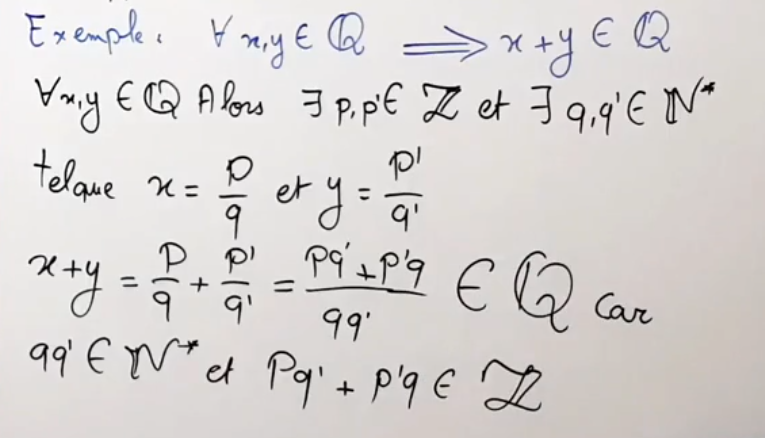 Exemple : ∀ x,y ∈ ℚ ⟹ x+y ∈ ℚ
∀x,y ∈ ℚ Alors ∃ p,p' ∈ ℤ et ∃ q,q' ∈ ℕ*
telque x = p/q et y = p'/q'
x+y = p/q + p'/q' = (pq'+p'q)/(qq') ∈ ℚ car
qq' ∈ ℕ* et pq' + p'q ∈ ℤ